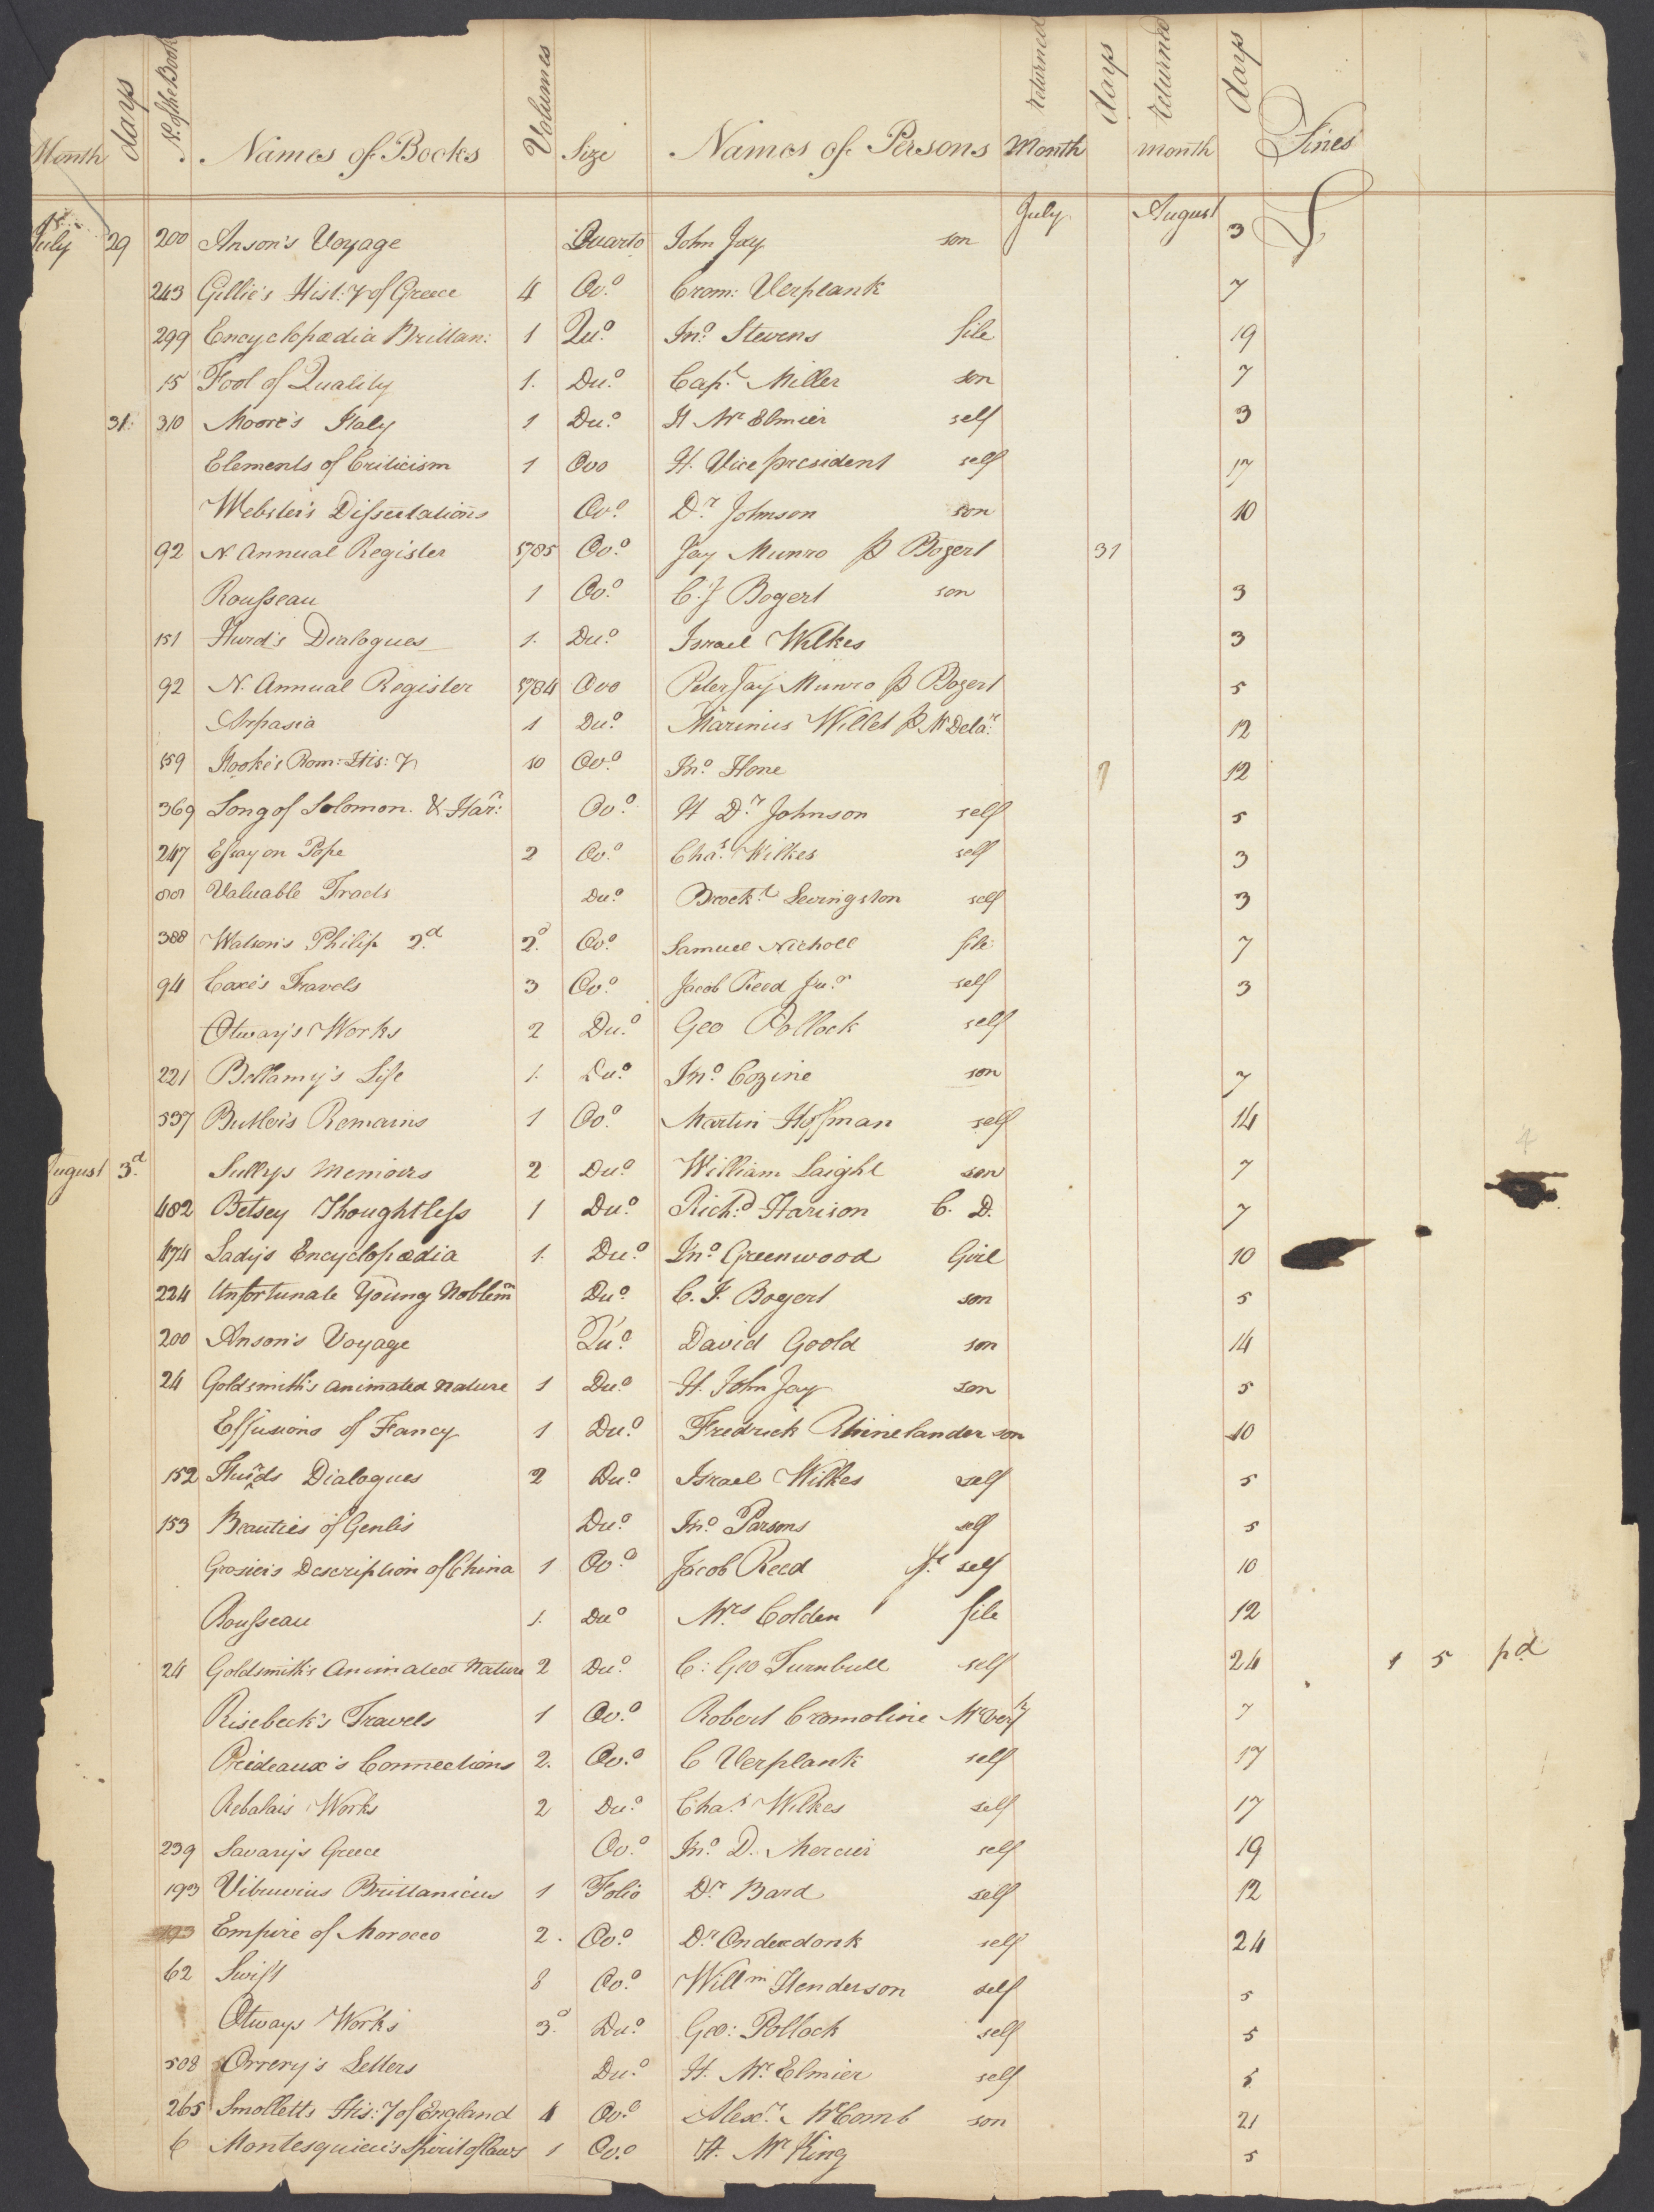 Month days No. of the Book Names of Books Volumes Size Names of Persons returned Month days returned month days Fines
July August
July 29 200 Anson's Voyage Quarto John Jay son 3
243 Gillie's Hist:y of Greece 4 Ovo. Crom: Verplank 7
299 Encyclopædia Brittan: 1 Quo. Jno. Stevens file 19
15 Fool of Quality 1. Duo. Capt. Miller son 7
31 310 Moore's Italy 1 Duo. H Mr Elmier self 3
Elements of Criticism 1 Ovo H. Vice president self 17
Webster's Dissertations Ovo. Dr. Johnson son 10
92 N Annual Register 1785 Ovo. Jay Munro p Bogert 31
Rousseau 1 Ovo. C. J Bogert son 3
151 Hurd's Dialogues 1. Duo. Israel Wilkes 3
92 N. Annual Register 1784 Ovo Peter Jay Munro p Bogert 5
Aspasia 1 Duo. Marinus Willet p Mr Dela: 12
159 Hooke's Rom: His:y 10 Ovo. Jno. Hone 7 12
369 Song of Solomon. & Har: Ovo. H Dr. Johnson self 5
247 Essay on Pope 2 Ovo. Chas. Wilkes self 3
Valuable Tracts Duo. Brockt. Levingston self 3
388 Watson's Philip 2d. 2d. Ovo. Samuel Nicholl file 7
94 Coxe's Travels 3 Ovo. Jacob Reed Junr. self 3
Otway's Works 2 Duo. Geo Pollock self
221 Bellamy's Life 1. Duo. Jno. Cozine son 7
537 Butler's Remains 1 Ovo. Martin Hoffman self 14
August 3d. Sullys Memoirs 2 Duo. William Laight son 7
482 Betsey Thoughtless 1 Duo. Richd. Harison C. D. 7
474 Lady's Encyclopædia 1. Duo. Jno. Greenwood Girl 10
224 Unfortunate Young Noblemn Duo. C. J. Bogert son 5
200 Anson's Voyage Quo. David Goold son 14
24 Goldsmith's animated Nature 1 Duo. H. John Jay son 5
Effusions of Fancy 1 Duo. Fredrick Rhinelander son 10
152 Hurds Dialogues 2 Duo. Israel Wilkes self 5
153 Beauties of Genlis Duo. Jno. Parsons self 5
Grosier's Description of China 1 Ovo. Jacob Reed Jr. self 10
Rousseau 1. Duo Mrs. Colden file 12
24 Goldsmith's Animated Nature 2 Duo. C: Geo Turnbull self 24 1 5 pd.
Risebeck's Travels 1 Ovo. Robert Cromoline 7
Prideaux's Connections 2. Ovo. C Verplank self 17
Rebalais Works 2 Duo. Chas. Wilkes self 17
239 Savary's Greece Ovo. Jno. D. Mercier self 19
193 Vitruvius Brittanicus 1 Folio Dr Bard self 12
Empire of Morocco 2. Ovo. Dr. Onderdonk self 24
62 Swift 8 Ovo. Willm Henderson self 5
Otways Works 3d. Duo. Geo: Pollock self 5
508 Orrery's Letters Duo. H. Mr. Elmier self 5
265 Smolletts His:y of England 4 Ovo. Alexr. McComb son 21
6 Montesquieu's Spirit of laws 1 Ovo. H. Mr King 5